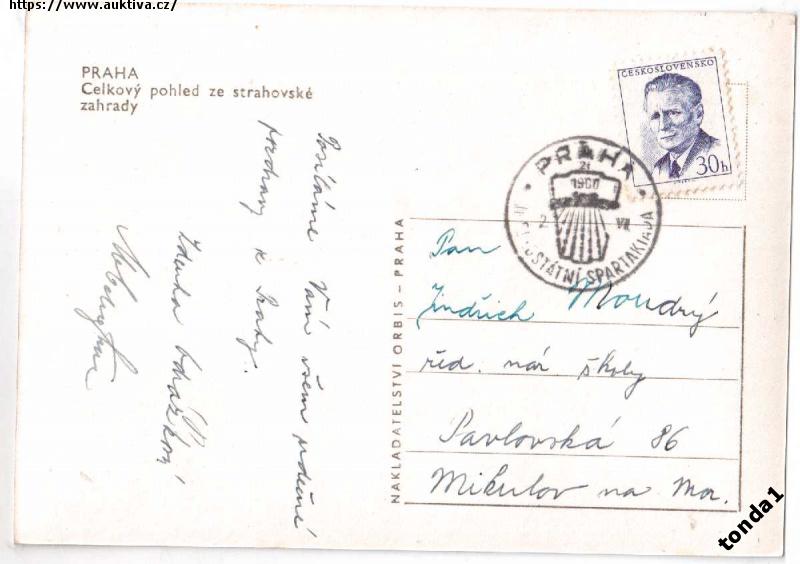 https://www.auktiva.cz/
PRAHA
Celkový pohled ze strahovské
zahrady
Posíláme Vám všem srdečné
pozdravy z Prahy.
Zdenka
ČESKOSLOVENSKO
30h
PRAHA
21
1960
2 VII
STÁTNÍ SPARTAKIADA
NAKLADATELSTVÍ ORBIS – PRAHA
Pan
Jindřich Moudrý
řed. nár školy
Pavlovská 86
Mikulov na Mor.
tonda1